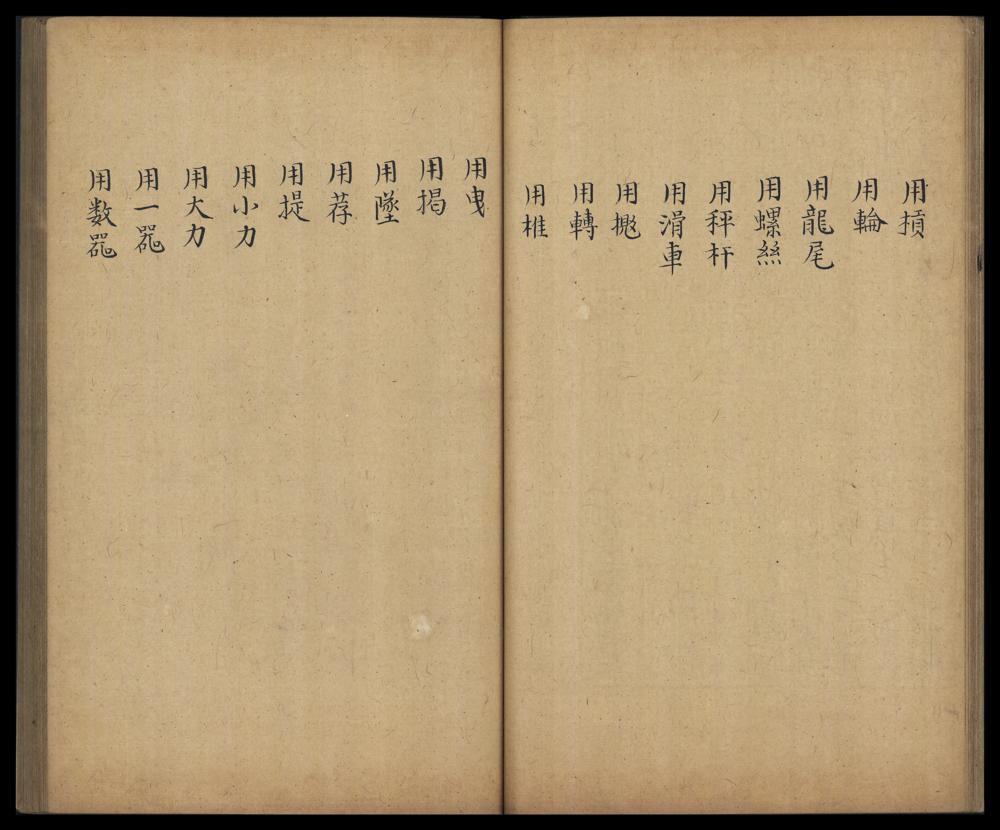 用摃
用輪
用龍尾
用螺絲
用秤杆
用滑車
用
用轉
用推
用曳
用揭
用墜
用荐
用提
用小力
用大力
用一噐
用数噐